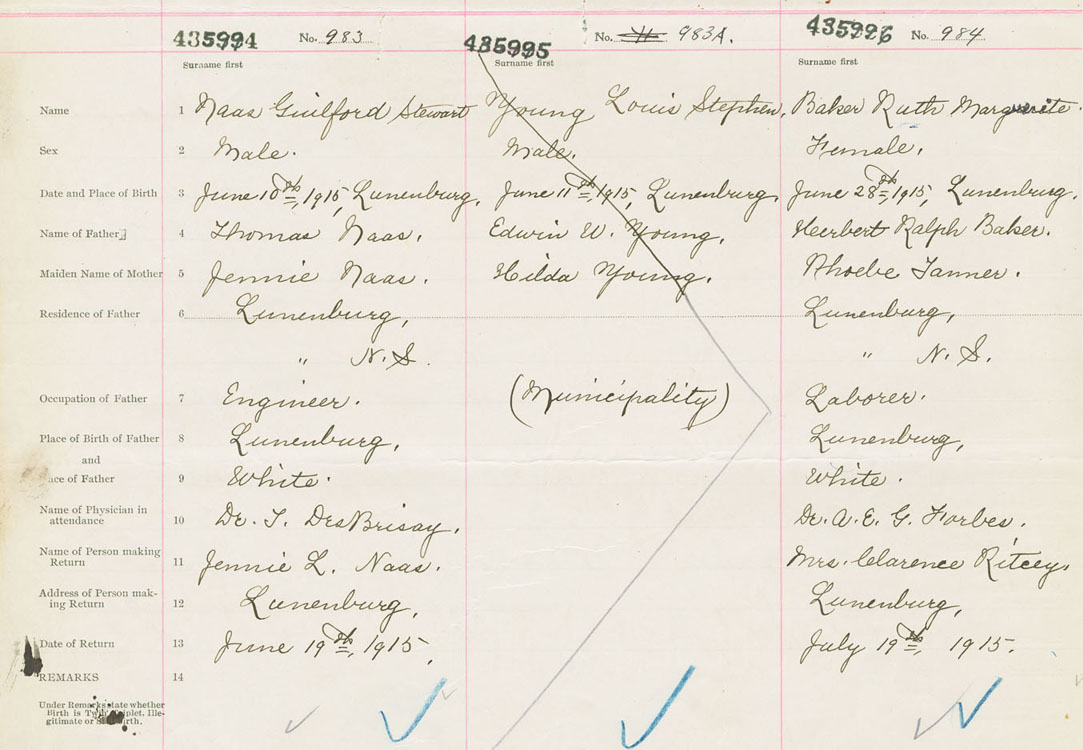 435994 No. 983 435995 No. 11 983A. 435996 No. 984
Surname first Surname first Surname first
Name 1 Naas Guilford Stewart Young Louis Stephen, Baker Ruth Marguerite.
Sex 2 Male. Male. Female.
Date and Place of Birth 3 June 10th, 1915, Lunenburg. June 11th, 1915, Lunenburg. June 28th, 1915, Lunenburg.
Name of Father 4 Thomas Naas. Edwin W. Young. Heerbert Ralph Baker.
Maiden Name of Mother 5 Jennie Naas. Hilda Young. Phoebe Tanner.
Residence of Father 6 Lunenburg, Lunenburg,
" N.S. " N.S.
Occupation of Father 7 Engineer. (Municipality) Laborer.
Place of Birth of Father 8 Lunenburg, Lunenburg,
and
ace of Father 9 White. White.
Name of Physician in
attendance 10 Dr. T. DesBrisay. Dr. A. E. G. Forbes.
Name of Person making
Return 11 Jennie L. Naas. Mrs. Clarence Ritcey,
Address of Person mak-
ing Return 12 Lunenburg, Lunenburg,
Date of Return 13 June 19th, 1915, July 19th, 1915.
REMARKS 14
Under Remarks state whether
Birth is Twin, Triplet. Ille-
gitimate or Still Birth.